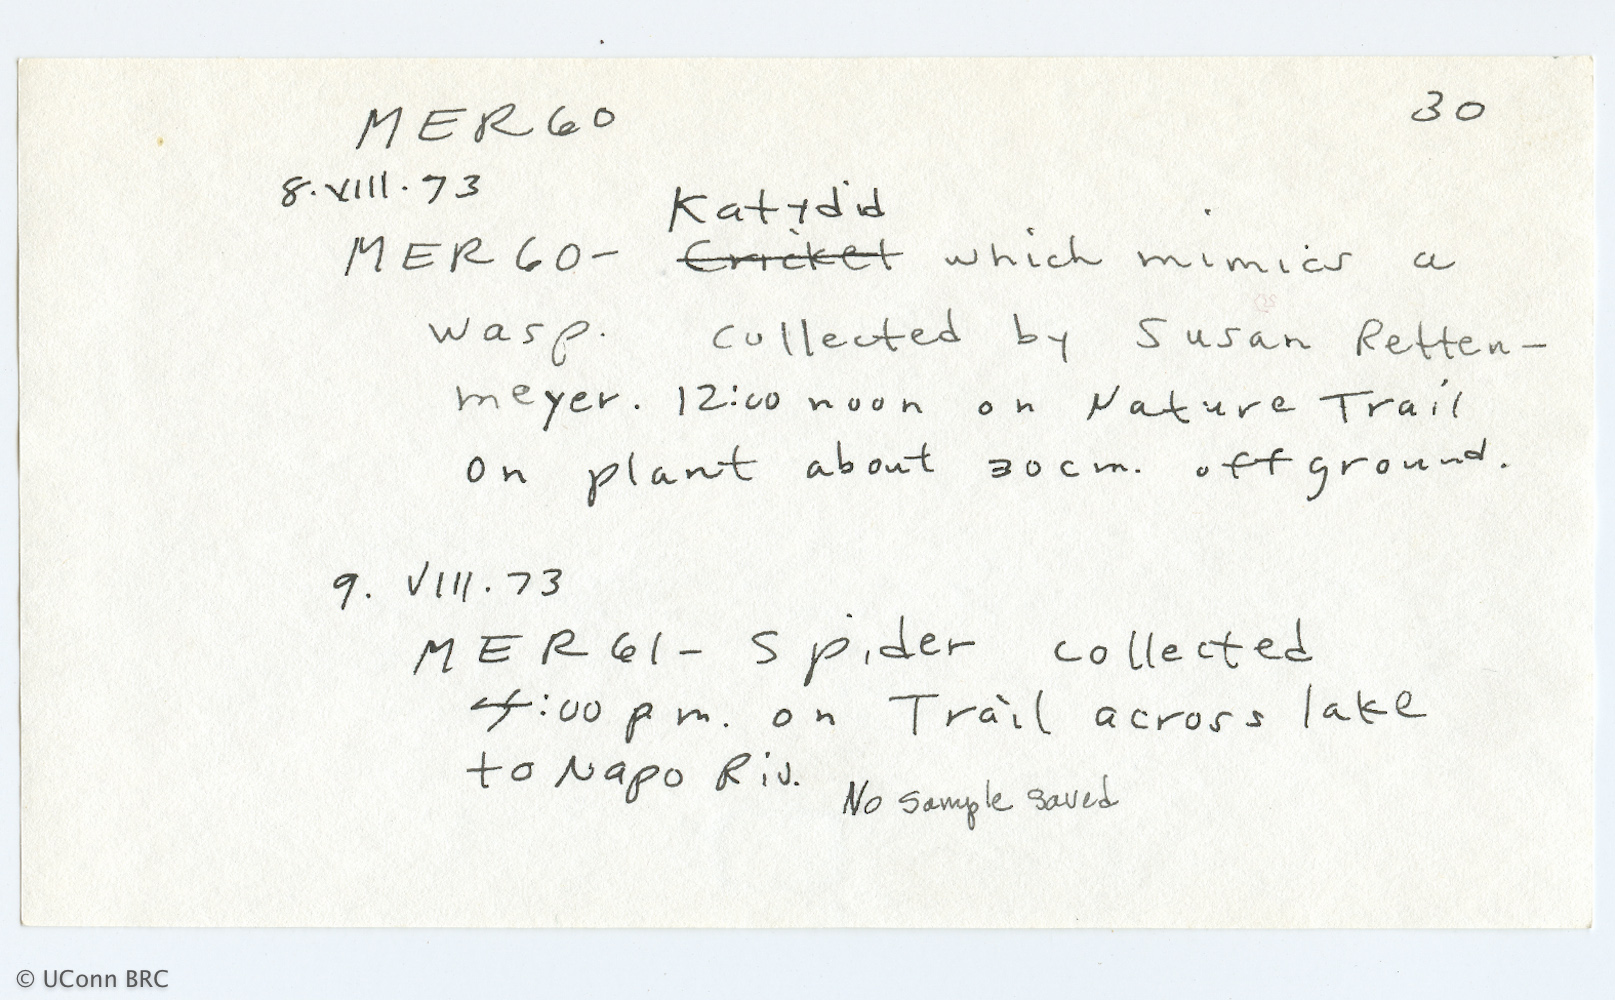 MER 60
30
8.VIII.73
Katydid
MER 60- Cricket which mimics a
wasp. Collected by Susan Retten-
meyer. 12:00 noon on Nature Trail
on plant about 30cm. off ground.
9. VIII.73
MER 61- Spider collected
4:00 pm. on Trail across lake
to Napo Riv.
No sample saved
© UConn BRC